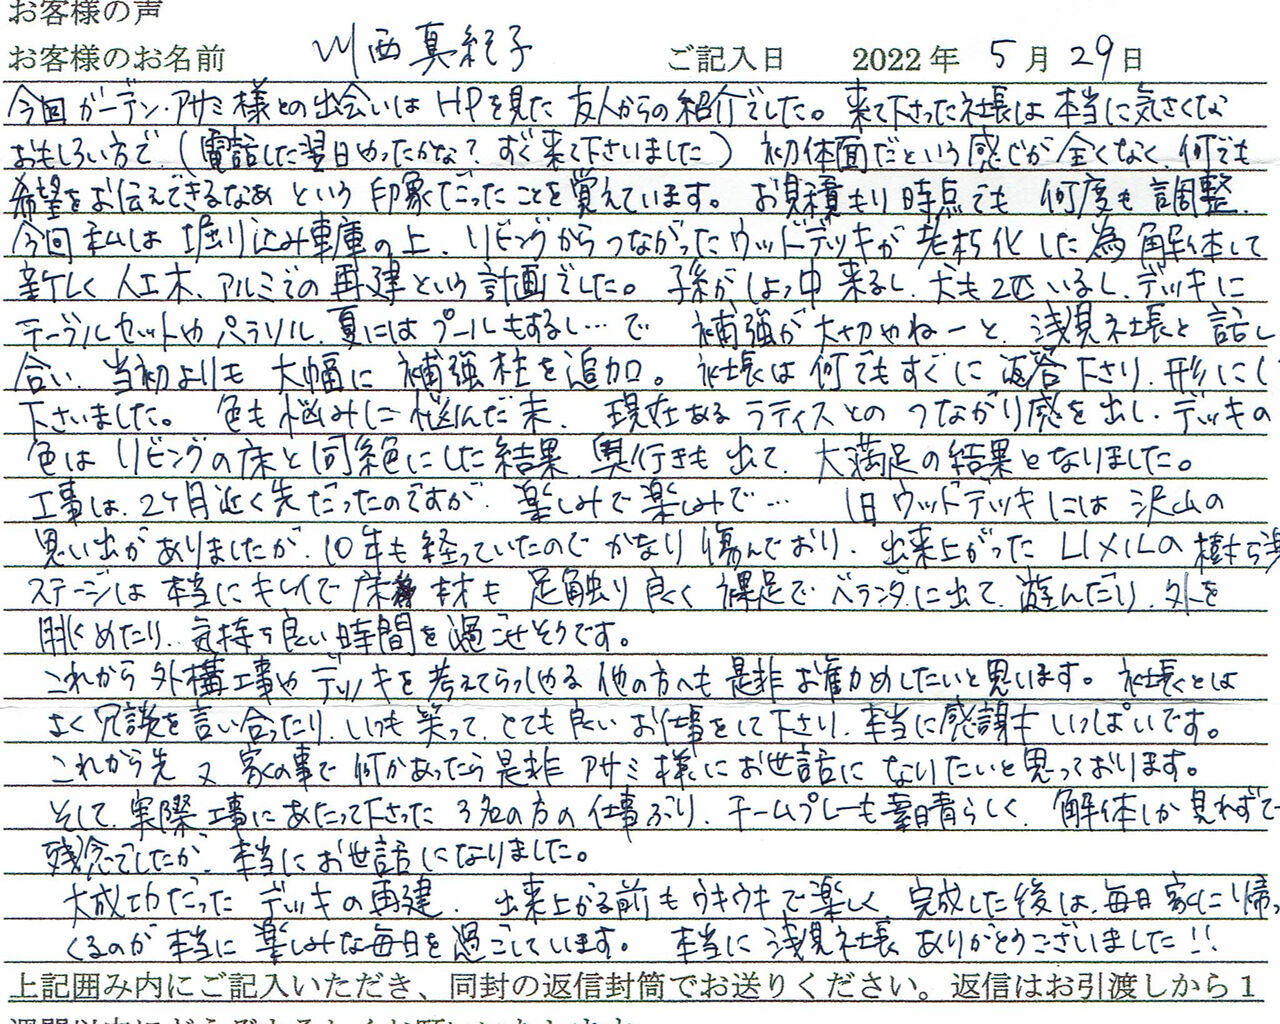 お客様の声
お客様のお名前 川西真紀子 ご記入日 2022年 5月29日
今回ガーデン・アサミ様との出会いはHPを見た友人からの紹介でした。来て下さった社長は本当に気さくな
おもしろい方で、(電話した翌日やったかな?すぐ来て下さいました)初体面だという感じが全くなく、何でも
希望をお伝えできるなあという印象だったことを覚えています。お見積もり時点でも何度も調整、
今回私は堀り込み車庫の上、リビングからつながったウッドデッキが老朽化した為解体して
新しく人工木、アルミでの再建という計画でした。子孫がしょっ中来るし、犬も2匹いるし、デッキに
テーブルセットやパラソル、夏にはプールもするし…で補強が大切やねーと、浅見社長と話し
合い、当初よりも大幅に補強柱を追加。社長は何でもすぐに返答下さり、形にし
下さいました。色も悩みに悩んだ末、現在あるラティスとのつながり感を出し、デッキの
色はリビングの床と同系色にした結果、奥行きも出て、大満足の結果となりました。
工事は、2ヶ月近く先だったのですが、楽しみで楽しみで… 旧ウッドデッキには沢山の
思い出がありましたが、10年も経っていたのでかなり傷んでおり、出来上がったLIXILの樹ら湯
ステージは本当にキレイで床材も足触り良く裸足でベランダに出て、遊んだり、外を
眺めたり、気持ち良い時間を過ごせそうです。
これから外構工事やデッキを考えてらっしゃる他の方へも是非お勧めしたいと思います。社長とは
よく冗談を言い合ったり、いつも笑って、とても良いお仕事をして下さり、本当に感謝でいっぱいです。
これから先又家の事で何かあったら是非アサミ様にお世話になりたいと思っております。
そして、実際工事にあたって下さった3名の方の仕事ぶり、チームプレーも素晴らしく、解体しか見れずで
残念でしたが、本当にお世話になりました。
大成功だったデッキの再建、出来上がる前もウキウキで楽しく、完成した後は、毎日家に帰っ
くるのが本当に楽しみな毎日を過ごしています。本当に浅見社長ありがとうございました!!
上記囲み内にご記入いただき、同封の返信封筒でお送りください。返信はお引渡しから1
週間以内にどうぞよろしくお願いいたします